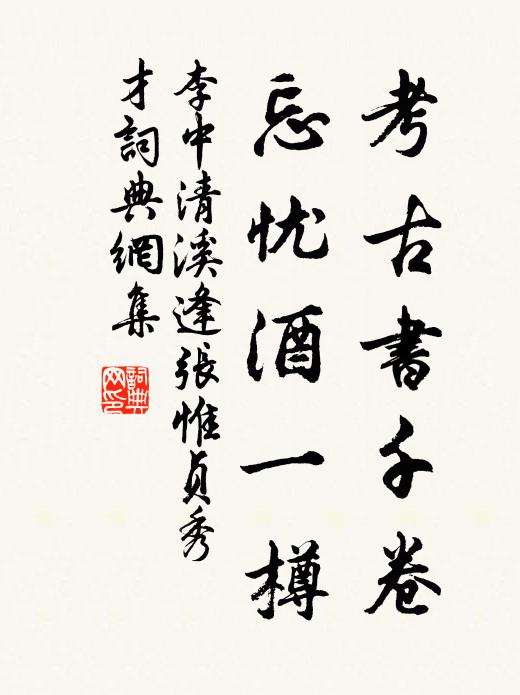 考古書千卷
忘忧酒一樽
李中清溪逢張惟貞秀
才詞典網集
詞典
网印